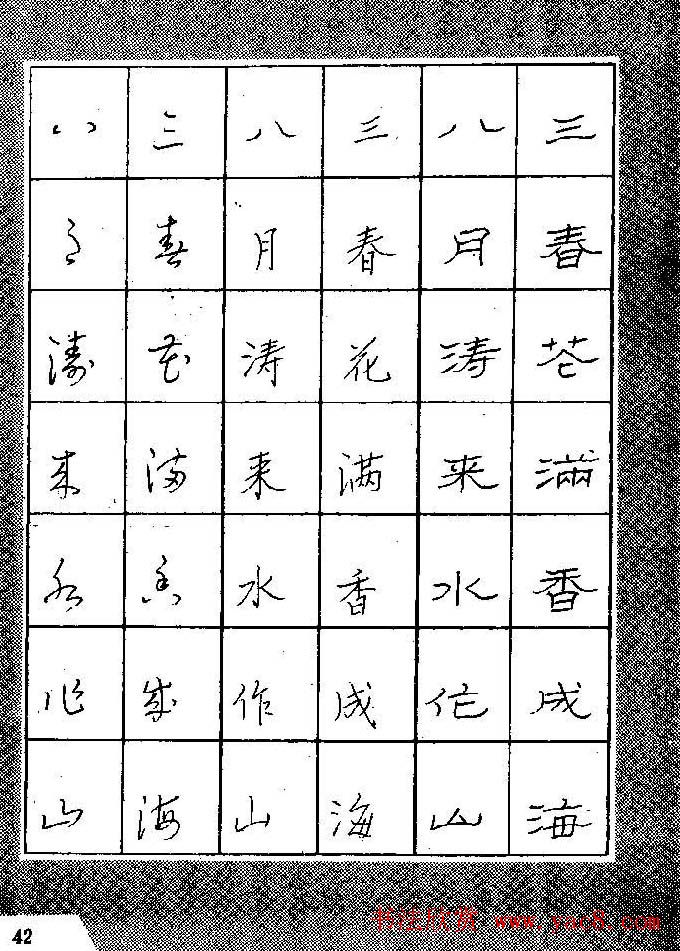 三春花满香成海
八月涛来水作山
三春花满香成海
八月涛来水作山
三春花满香成海
八月涛来水作山
42
书法欣赏 www.yac8.com